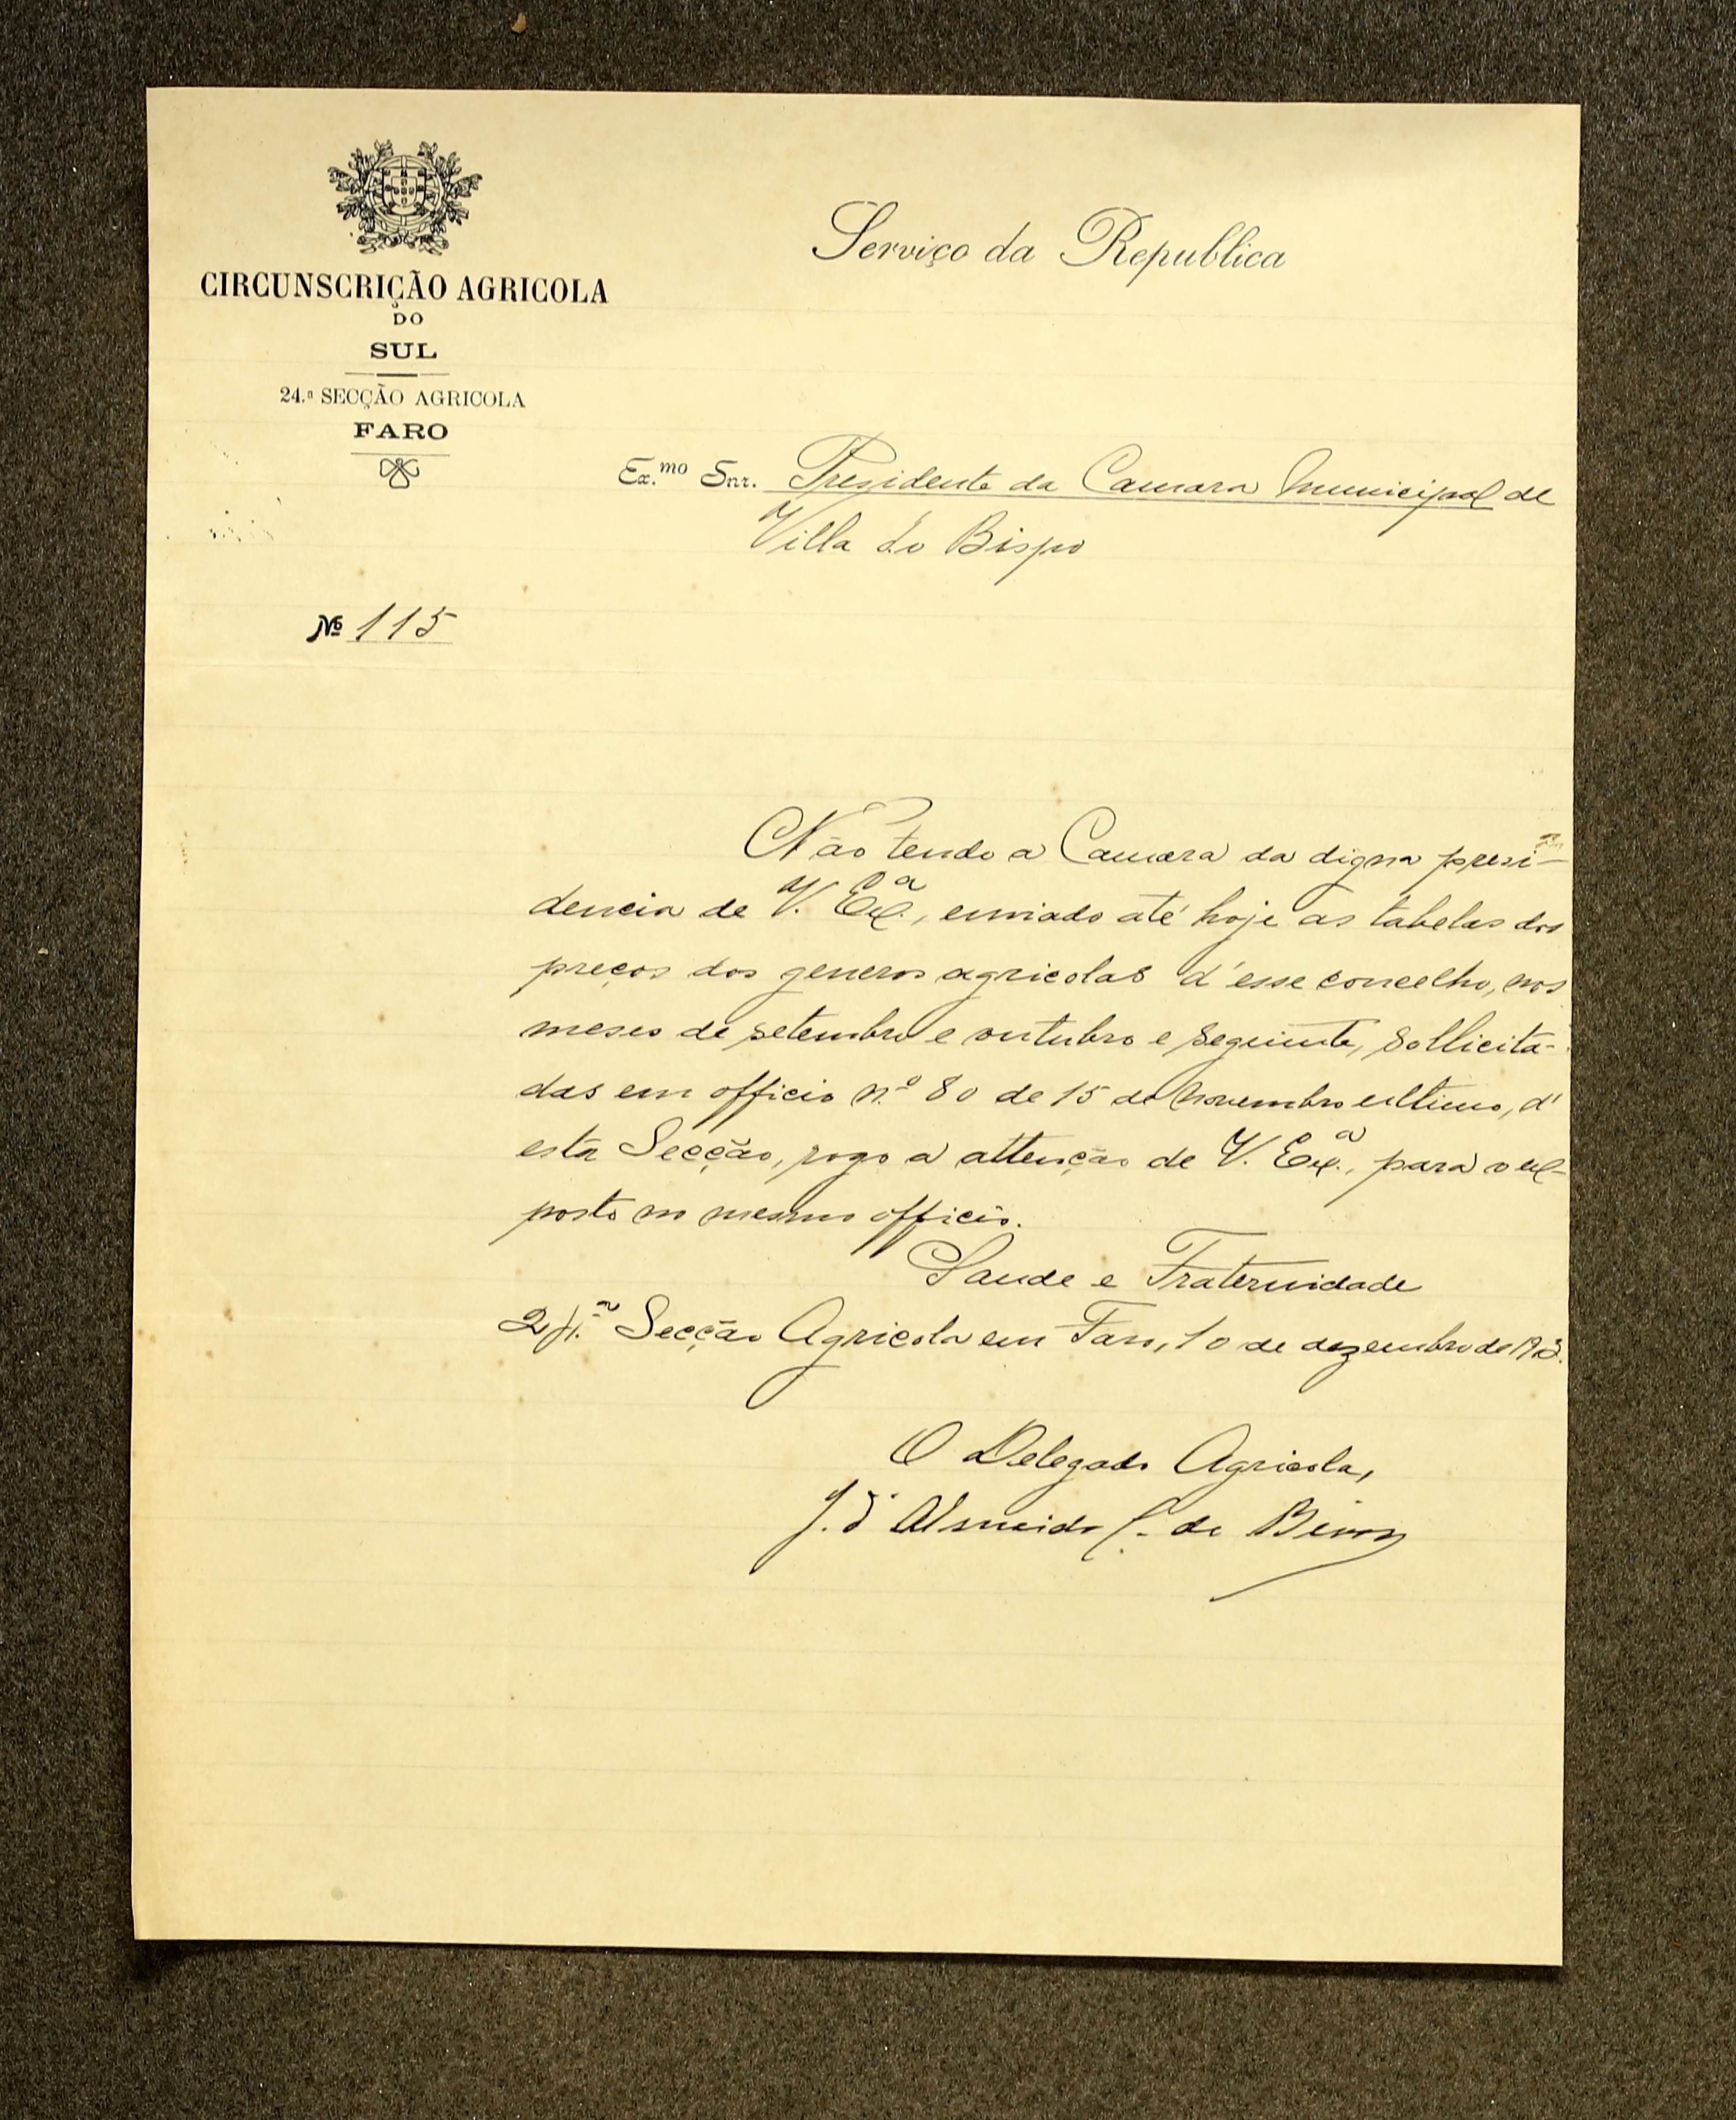 CIRCUNSCRIÇÃO AGRICOLA
DO
SUL
24.ª SECÇÃO AGRICOLA
FARO
Serviço da Republica
Ex.mo Snr. Presidente da Camara Municipal de
Villa do Bispo
Nº 115
Não tendo a Camara da digna presi-
dencia de V. Exª., enviado até hoje as tabelas dos
preços dos generos agricolas d'esse concelho, nos
meses de setembro e outubro e seguinte, sollicita-
das em officio n.º 80 de 15 de novembro ultimo, d'
esta Secção, rogo a attenção de V. Exª., para o ex-
posto no mesmo officio.
Saude e Fraternidade
24.ª Secção Agricola em Faro, 10 de dezembro de 1913.
O Delegado Agricola,
J. d'Almeida C. de Bivar